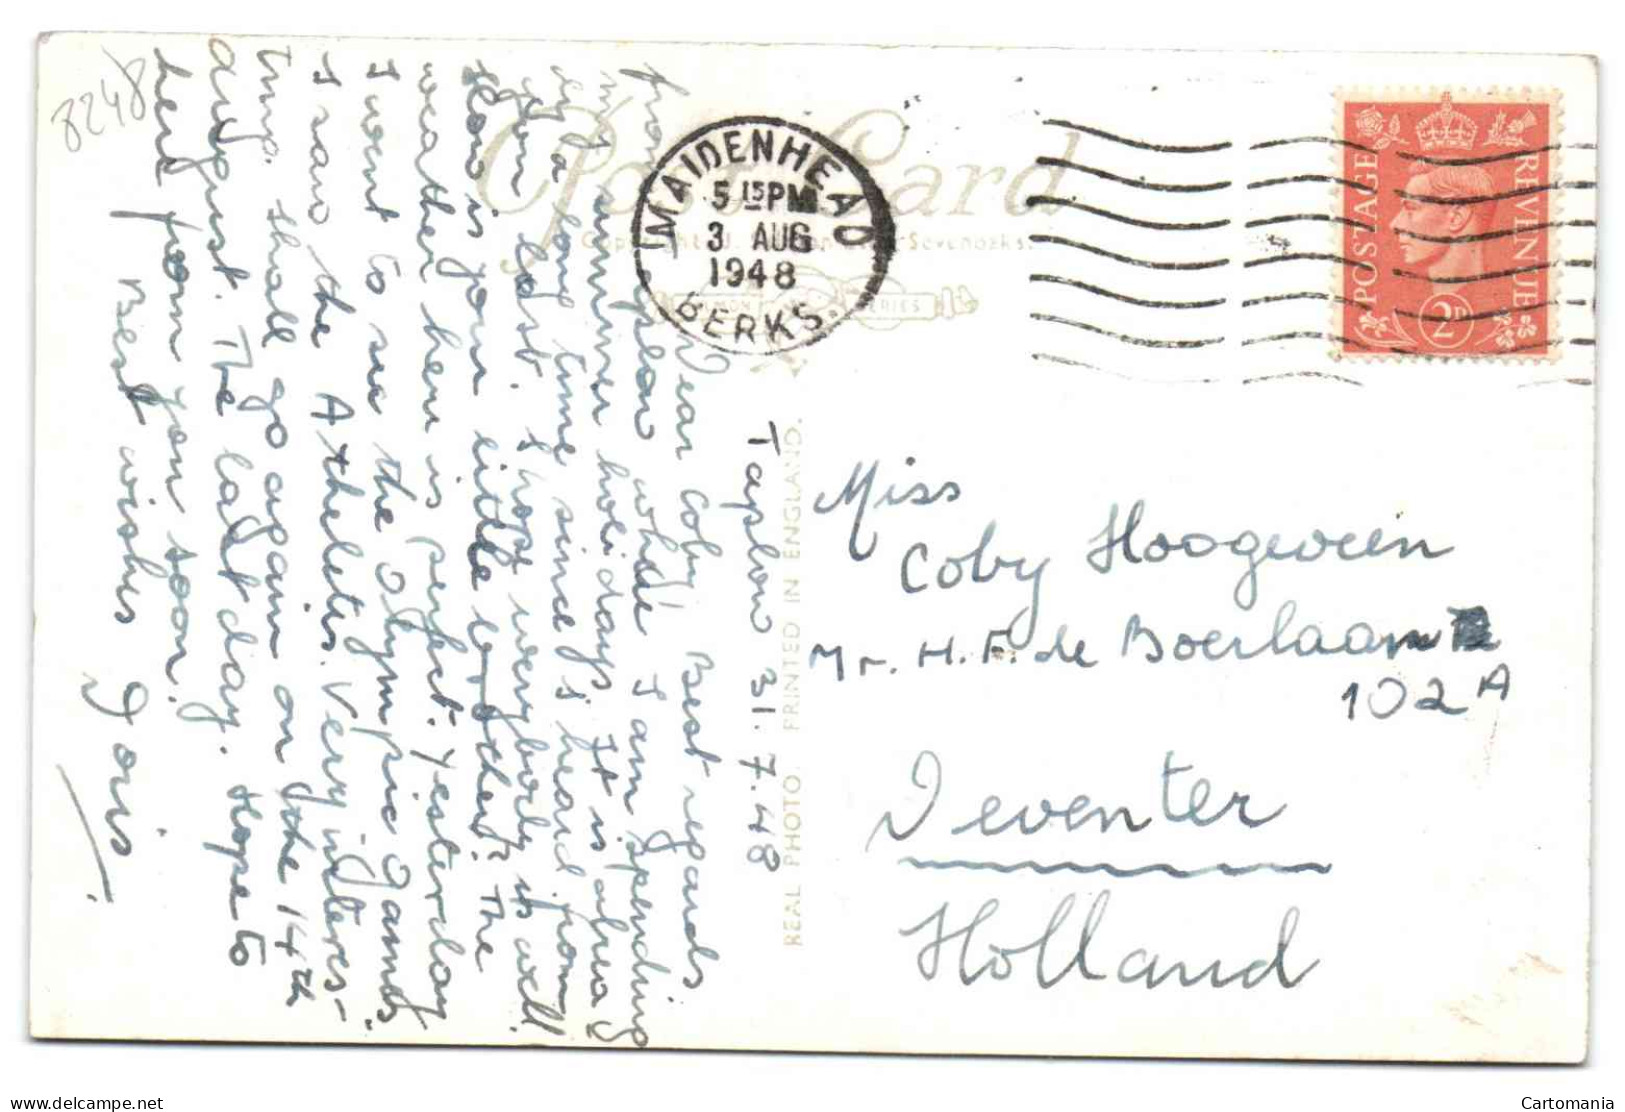 8248
Taplow 31.7.48
Dear Coby! Best regards
from Taplow where I am spending
my summer holidays. It is alrea
dy a long time since I heard from
you last. I hope everybody is well
How is your little brother? The
weather here is perfect. Yesterday
I went to see the Olympic Games.
I saw the Atheletis. Very interes-
ting. Shall go again on the 14th
August. The last day. Hope to
here from you soon.
Best wishes
Doris
Post Card
Sevenoaks.
SERIES
REAL PHOTO. PRINTED IN ENGLAND.
MAIDENHEAD
5 15 PM
3 AUG
1948
BERKS.
POSTAGE REVENUE
2D
Miss
Coby Hoogeveen
Mr. H. F. de Boerlaan
102A
Deventer
Holland
Cartomania